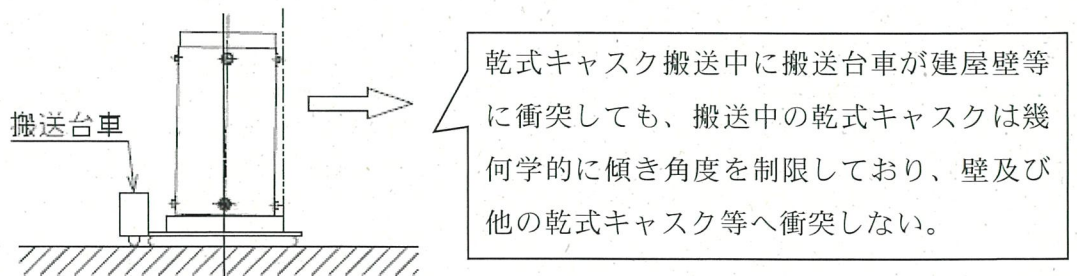 搬送台車
乾式キャスク搬送中に搬送台車が建屋壁等
に衝突しても、搬送中の乾式キャスクは幾
何学的に傾き角度を制限しており、壁及び
他の乾式キャスク等へ衝突しない。